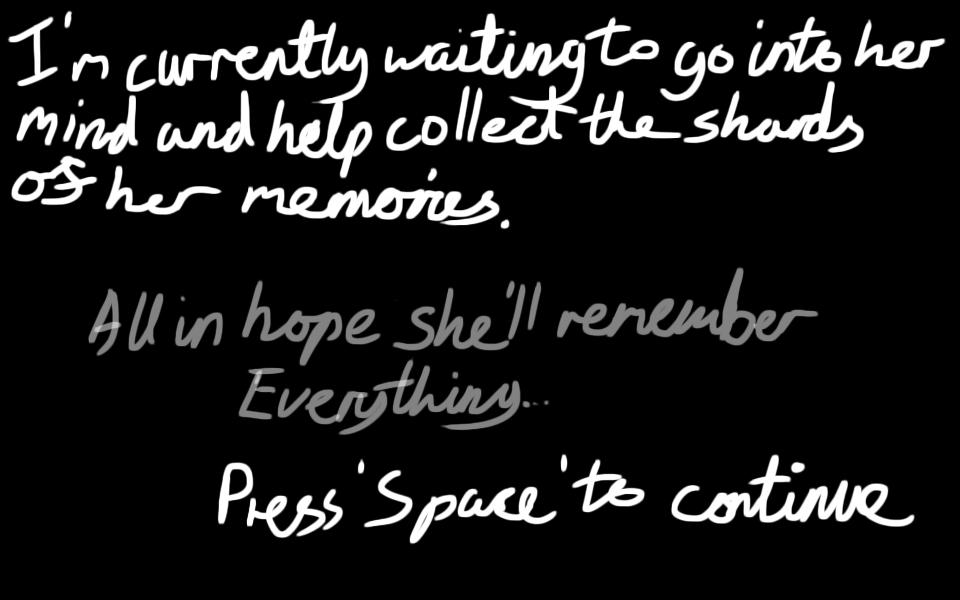 I'm currently waiting to go into her
mind and help collect the shards
of her memories.
All in hope she'll remember
Everything...
Press 'Space' to continue